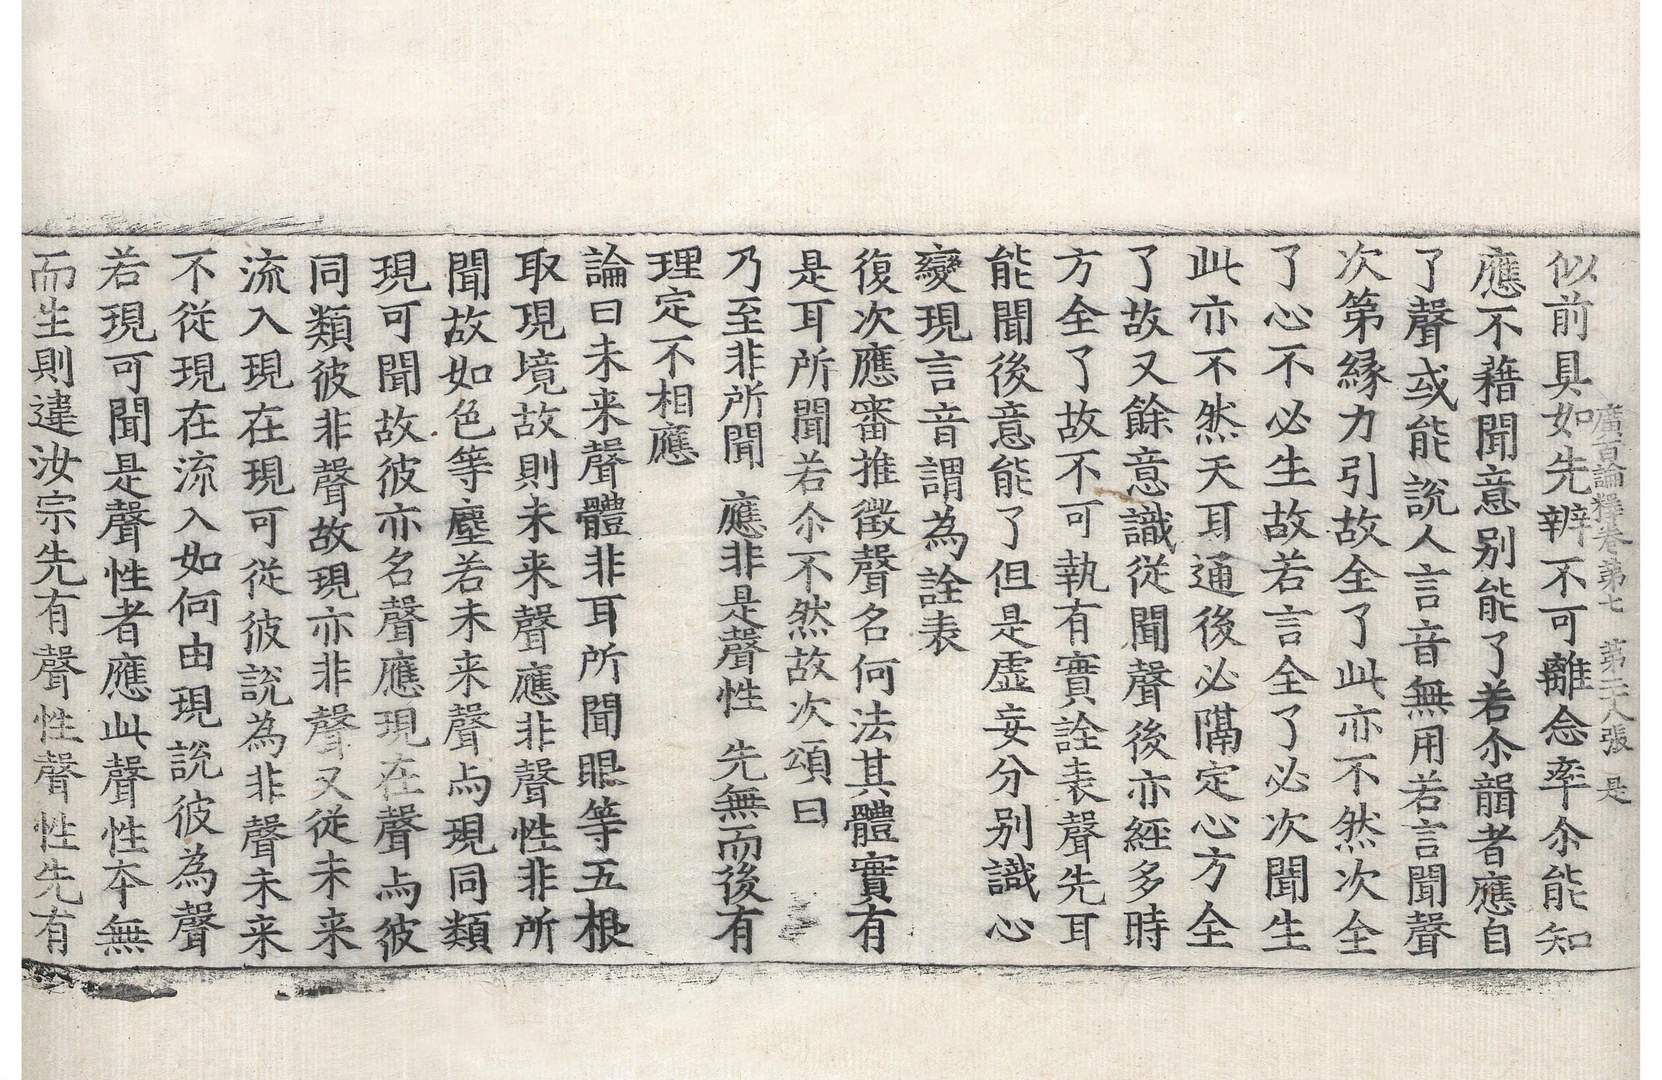 廣百論釋卷第七　第二十八張　是
似前具如先辨不可離念率尒能知
應不藉聞意别能了若尒韻者應自
了聲或能說人言音無用若言聞聲
次第縁力引故全了此亦不然次全
了心不必生故若言全了必次聞生
此亦不然天耳通後必隔定心方全
了故又餘意識從聞聲後亦經多時
方全了故不可執有實詮表聲先耳
能聞後意能了但是虛妄分别識心
變現言音謂為詮表
復次應審推徵聲名何法其體實有
是耳所聞若尒不然故次頌曰
乃至非所聞　應非是聲性　先無而後有
理定不相應
論曰未来聲體非耳所聞眼等五根
取現境故則未来聲應非聲性非所
聞故如色等塵若未来聲与現同類
現可聞故彼亦名聲應現在聲与彼
同類彼非聲故現亦非聲又從未来
流入現在現可從彼說為非聲未来
不從現在流入如何由現說彼為聲
若現可聞是聲性者應此聲性本無
而生則違汝宗先有聲性聲性先有